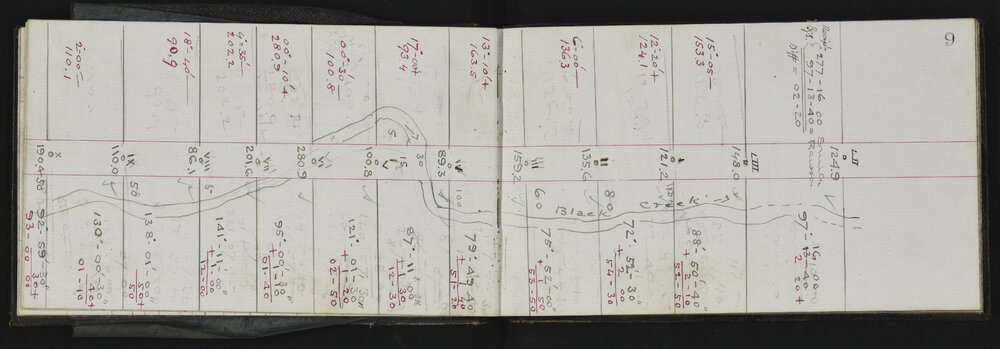 6
277-16 00 South
97-13-40 =
Diff = 02-20
LII
124.9
97°-13-40
16 00
+ 2 20
LIII
148.0
15°-05
153.3
I
121.2
88°-50-40"
+ 2-10
52-50
12°-20+
124.1
II
135.6
80
72°-52-30"
+ 2-00
54-30
6°-00
136.3
III
159.2
60
75°-52-00"
+ 1 50
53 50
Black Creek
13°-10+
163.5
IV
89.3
100
79°-49-40
+ 1 40
51-20
17°-00+
93.4
V
100.8
5
15
30
87°-11-00
+ 1 30
12-30
00°-30'
100.8
VI
280.9
121°-01-30"
+ 1-20
02-50
00°-10'+
280.9
VII
201.6
95°-00-30"
+ 1-10
01-40
4°-35
202.2
VIII
86.1
5
141°-11-00"
+ 1-00
12-00
18°-40'
90.9
IX
110.0
50
138°-01'-00"
+ 50
50
2°-00
110.1
X
190.4
130°-00-30"
+ 40
01-10
50
92-59-30
30+
93-00 00